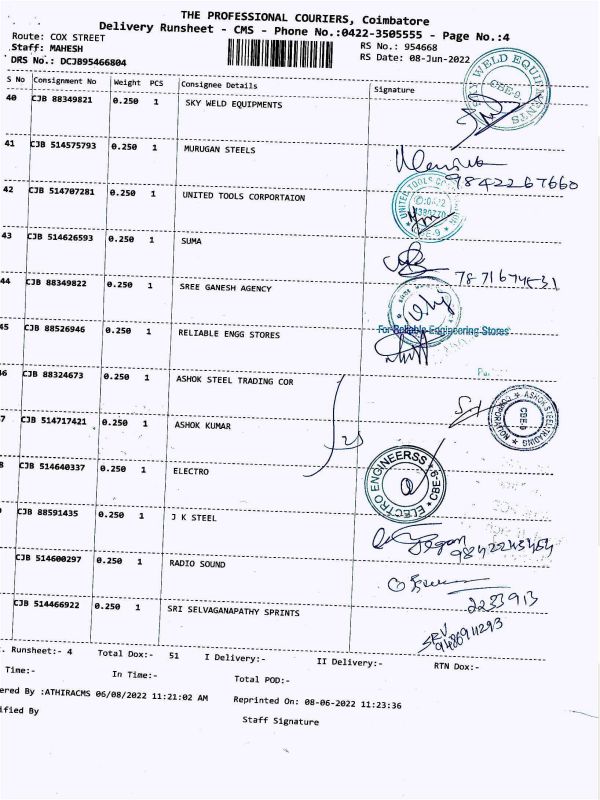 THE PROFESSIONAL COURIERS, Coimbatore
Delivery Runsheet - CMS - Phone No.:0422-3505555 - Page No.:4
Route: COX STREET
RS No.: 954668
Staff: MAHESH
RS Date: 08-Jun-2022
DRS No.: DCJB95466804
S No Consignment No Weight PCS Consignee Details Signature
40 CJB 88349821 0.250 1 SKY WELD EQUIPMENTS
SKY WELD EQUIPMENTS CBE-9
41 CJB 514575793 0.250 1 MURUGAN STEELS
9842267660
42 CJB 514707281 0.250 1 UNITED TOOLS CORPORTAION
UNITED TOOLS
43 CJB 514626593 0.250 1 SUMA
7871674531
44 CJB 88349822 0.250 1 SREE GANESH AGENCY
45 CJB 88526946 0.250 1 RELIABLE ENGG STORES
For Reliable Engineering Stores
46 CJB 88324673 0.250 1 ASHOK STEEL TRADING COR
ASHOK STEEL TRADING CORPORATION CBE-9
7 CJB 514717421 0.250 1 ASHOK KUMAR
8 CJB 514640337 0.250 1 ELECTRO
ELECTRO ENGINEERSS CBE-9
CJB 88591435 0.250 1 J K STEEL
CJB 514600297 0.250 1 RADIO SOUND
2233913
CJB 514466922 0.250 1 SRI SELVAGANAPATHY SPRINTS
SRV
9486911293
. Runsheet:- 4 Total Dox:- 51 I Delivery:- II Delivery:- RTN Dox:-
Time:- In Time:- Total POD:-
ered By :ATHIRACMS 06/08/2022 11:21:02 AM Reprinted On: 08-06-2022 11:23:36
ified By Staff Signature